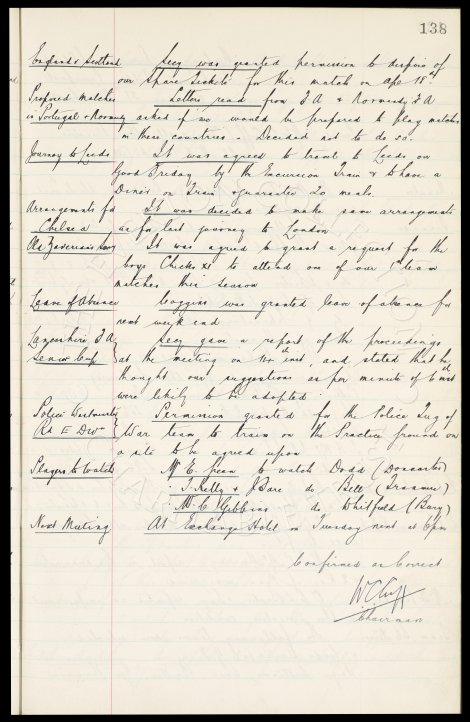 138
England v Scotland Secy was granted permission to dispose of
our spare tickets for this match on Apl 18th
Proposed matches Letters read from F A & Normandy F A
in Portugal & Normandy asked if we would be prepared to play matches
in these countries. Decided not to do so.
Journey to Leeds It was agreed to travel to Leeds on
Good Friday by the Excursion Train & to have a
Diner on Train & guarantee 20 meals.
Arrangements for It was decided to make same arrangements
Chelsea as for last journey to London
Old Xaverians It was agreed to grant a request for the
boys to attend one of our 1st team
matches this season
Leave of Absence Coggins was granted leave of absence for
next week end
Lancashire F A Secy gave a report of the proceedings
Senior Cup at the meeting on 14th inst, and stated that he
thought our suggestions as per minute of 6th inst
were likely to be adopted
Police Westminster Permission granted for the Police Tug of
Rd E Divn War team to train on the Practice ground on
a site to be agreed upon
Players to Watch to watch Dodd (Doncaster)
T. Kelly & do Bell (Tranmere)
Mr C Gibbins do Whitfield (Bury)
Next Meeting At Exchange Hotel on Tuesday next at 6pm
Confirmed as Correct
W C Cuff
Chairman